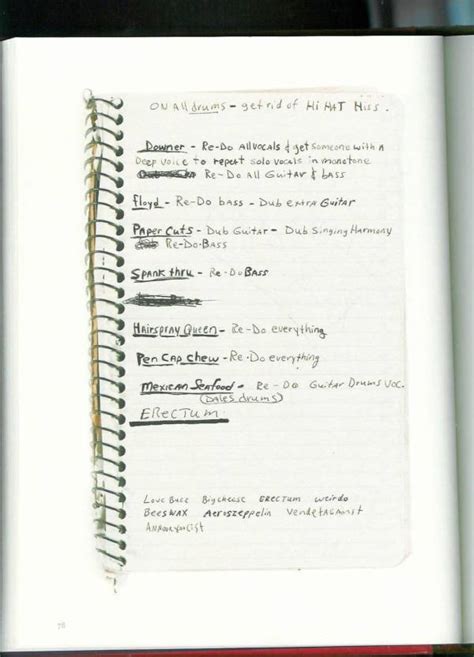 ON All drums - get rid of Hi HAT Hiss.
Downer - Re-Do All vocals & get someone with a
Deep voice to repeat solo vocals in monotone
Re-Do All Guitar & bass
floyd - Re-Do bass - Dub extra Guitar
Paper Cuts - Dub Guitar - Dub Singing Harmony
Re-Do Bass
Spank thru - Re-Do Bass
Hairspray Queen - Re-Do everything
Pen Cap Chew - Re-Do everything
Mexican Seafood - Re-Do Guitar Drums Voc.
(Dales drums)
ERECTUM
Love Buzz Bigcheese ERECTUM weirdo
Beeswax Aeroszeppelin Vendetagainst